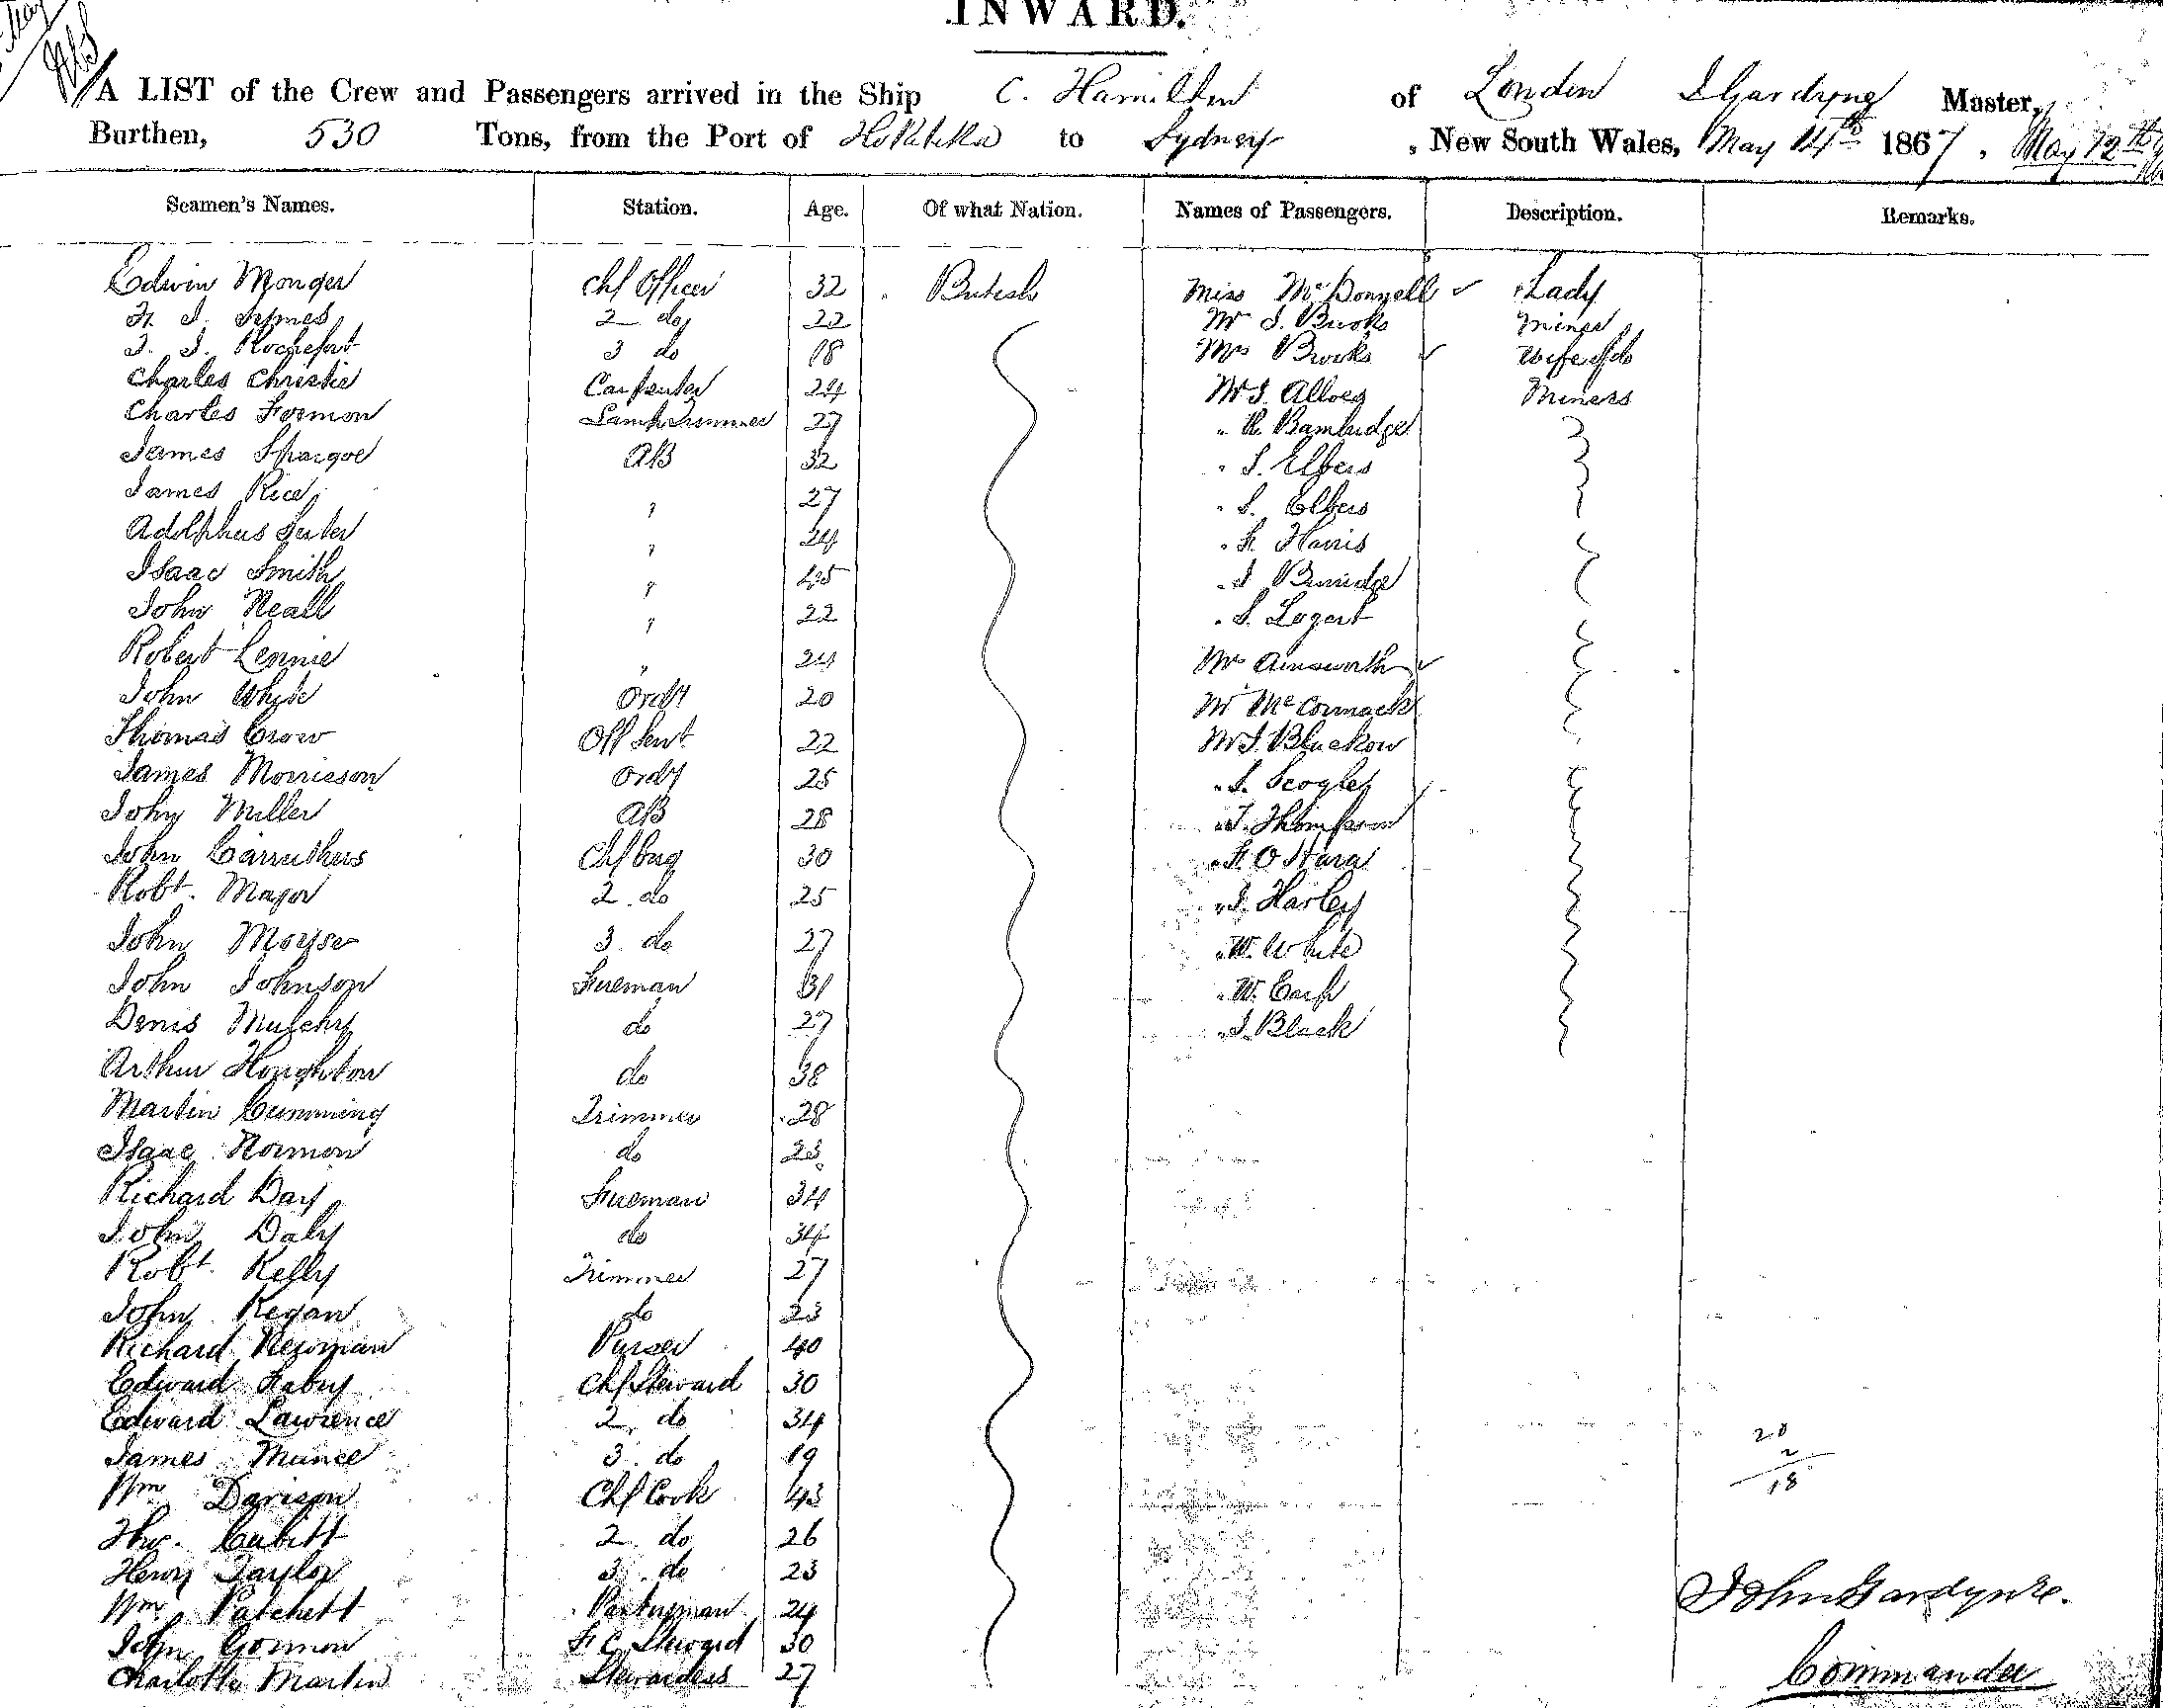 INWARD.
A LIST of the Crew and Passengers arrived in the Ship C. Hamilton of London J Gardyne Master,
Burthen, 530 Tons, from the Port of Hokitika to Sydney, New South Wales, May 14th 1867, May 12th
Seamen's Names. Station. Age. Of what Nation. Names of Passengers. Description. Remarks.
Edwin Monger Chf Officer 32 British Miss McDonnell Lady
2 do 22 Mr J. Brooks Miner
J. J. Rochefort 3 do 18 Mrs Brooks Wife of do
Charles Christie Carpenter 24 Mr J. Miners
Charles Formon Lamp Trimmer 27 " R. Bambridge
James AB 32 " J. Elbers
James Rice " 27 " S. Elbers
Adolphus " 24 " F. Harris
Isaac Smith " 45 " J Burridge
John Neall " 22 " S.
Robert Lennie " 24 Mrs Ainsworth
John White Ordy 20 Mr McCormack
Thomas Crow Off Servt 22 Mr J.
James Morrieson Ordy 25 " S.
John Miller AB 28 " J. Thompson
John Carruthers Chf Eng 30 " F. O Hara
Robt. Major 2 do 25 " J. Harley
John Moyse 3 do 27 " W. White
John Johnson Fireman 31 " W.
Denis Mulcahy do 27 " J. Black
Arthur Houghton do 38
Martin Cumming Trimmer 28
Isaac Normon do 23
Richard Day Fireman 34
John Daly do 34
Robt. Kelly Trimmer 27
John Regan do 23
Richard Newman Purser 40
Edward Fabry Chf Steward 30
Edward Lawrence 2 do 34
James Munce 3 do 19
Wm Davison Chf Cook 43
Thos. Cubitt 2 do 26
Henry Taylor 3 do 23
Wm Patchett Pantryman 24
John Gormon F C Steward 30
Charlotte Martin Stewardess 27
20
2
18
John Gardyne.
Commander